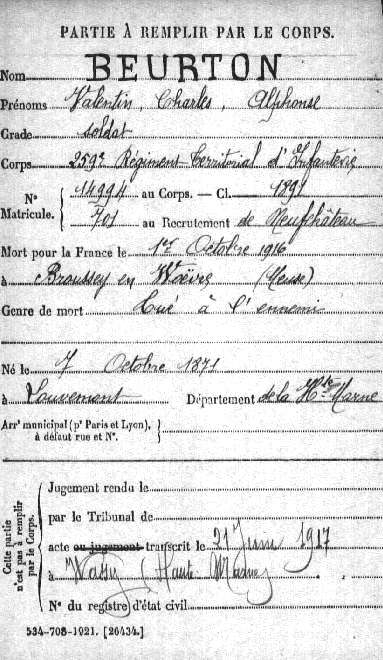 PARTIE À REMPLIR PAR LE CORPS.
Nom BEURTON
Prénoms Valentin, Charles, Alphonse
Grade soldat
Corps 259e Régiment Territorial d'Infanterie
N° Matricule. 14994 au Corps. — Cl. 1891
701 au Recrutement de Neufchâteau
Mort pour la France le 1er Octobre 1916
à Broussey en Woëvre (Meuse)
Genre de mort Tué à l'ennemi
Né le 7 Octobre 1871
à Louvemont Département de la Hte Marne
Arrt municipal (pr Paris et Lyon),
à défaut rue et N°.
Cette partie n'est pas à remplir par le Corps.
Jugement rendu le
par le Tribunal de
acte ou jugement transcrit le 21 Juin 1917
à Wassy (Haute Marne)
N° du registre d'état civil
534-708-1921. [26434.]